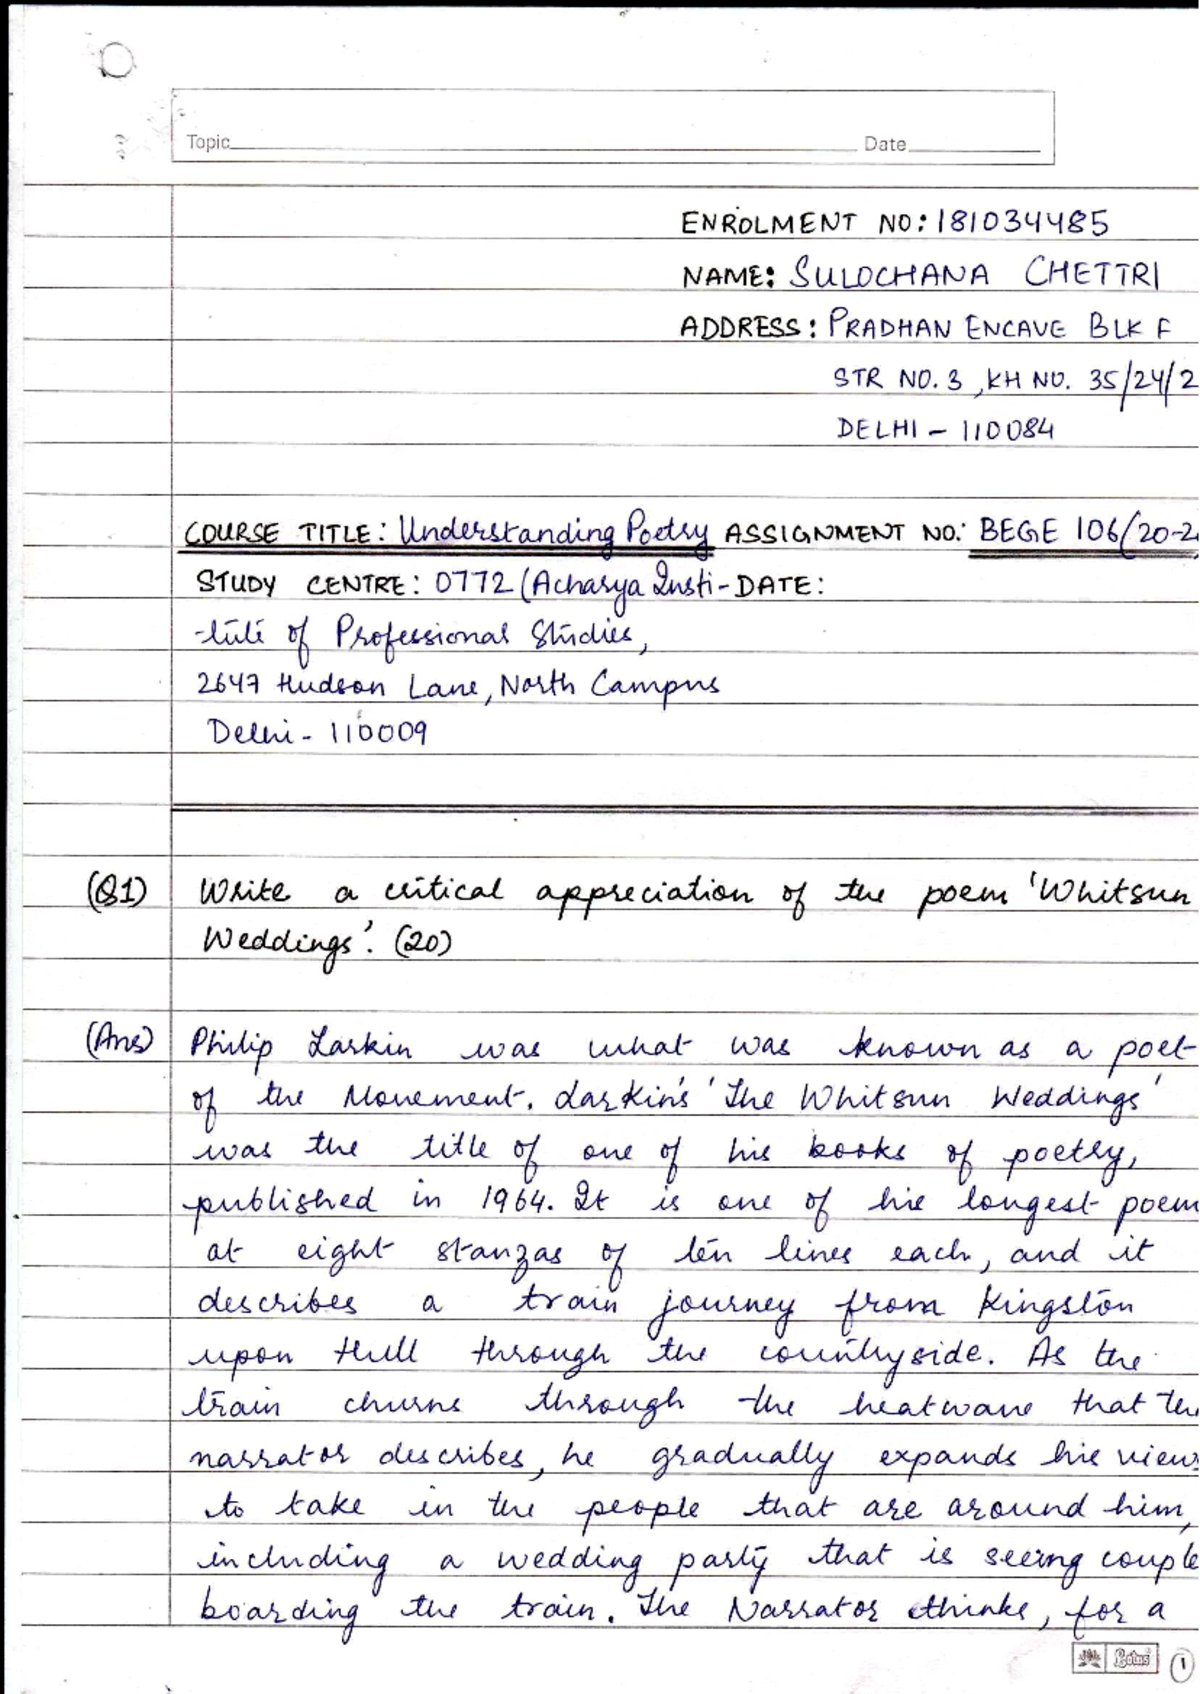 Topic Date
ENROLMENT NO: 181034485
NAME: SULOCHANA CHETTRI
ADDRESS: PRADHAN ENCAVE BLK F
STR NO. 3, KH NO. 35/24/2
DELHI - 110084
COURSE TITLE: Understanding Poetry ASSIGNMENT NO: BEGE 106/20-2
STUDY CENTRE: 0772 (Acharya Insti- DATE:
-tute of Professional Studies,
2647 Hudson Lane, North Campus
Delhi - 110009
(Q1) Write a critical appreciation of the poem 'Whitsun
Weddings'. (20)
(Ans) Philip Larkin was what was known as a poet
of the Movement. Larkin's 'The Whitsun Weddings'
was the title of one of his books of poetry,
published in 1964. It is one of his longest poem
at eight stanzas of ten lines each, and it
describes a train journey from Kingston
upon Hull through the countryside. As the
train churns through the heatwave that the
narrator describes, he gradually expands his views
to take in the people that are around him,
including a wedding party that is seeing couple
boarding the train. The Narrator thinks, for a
Lotus 1